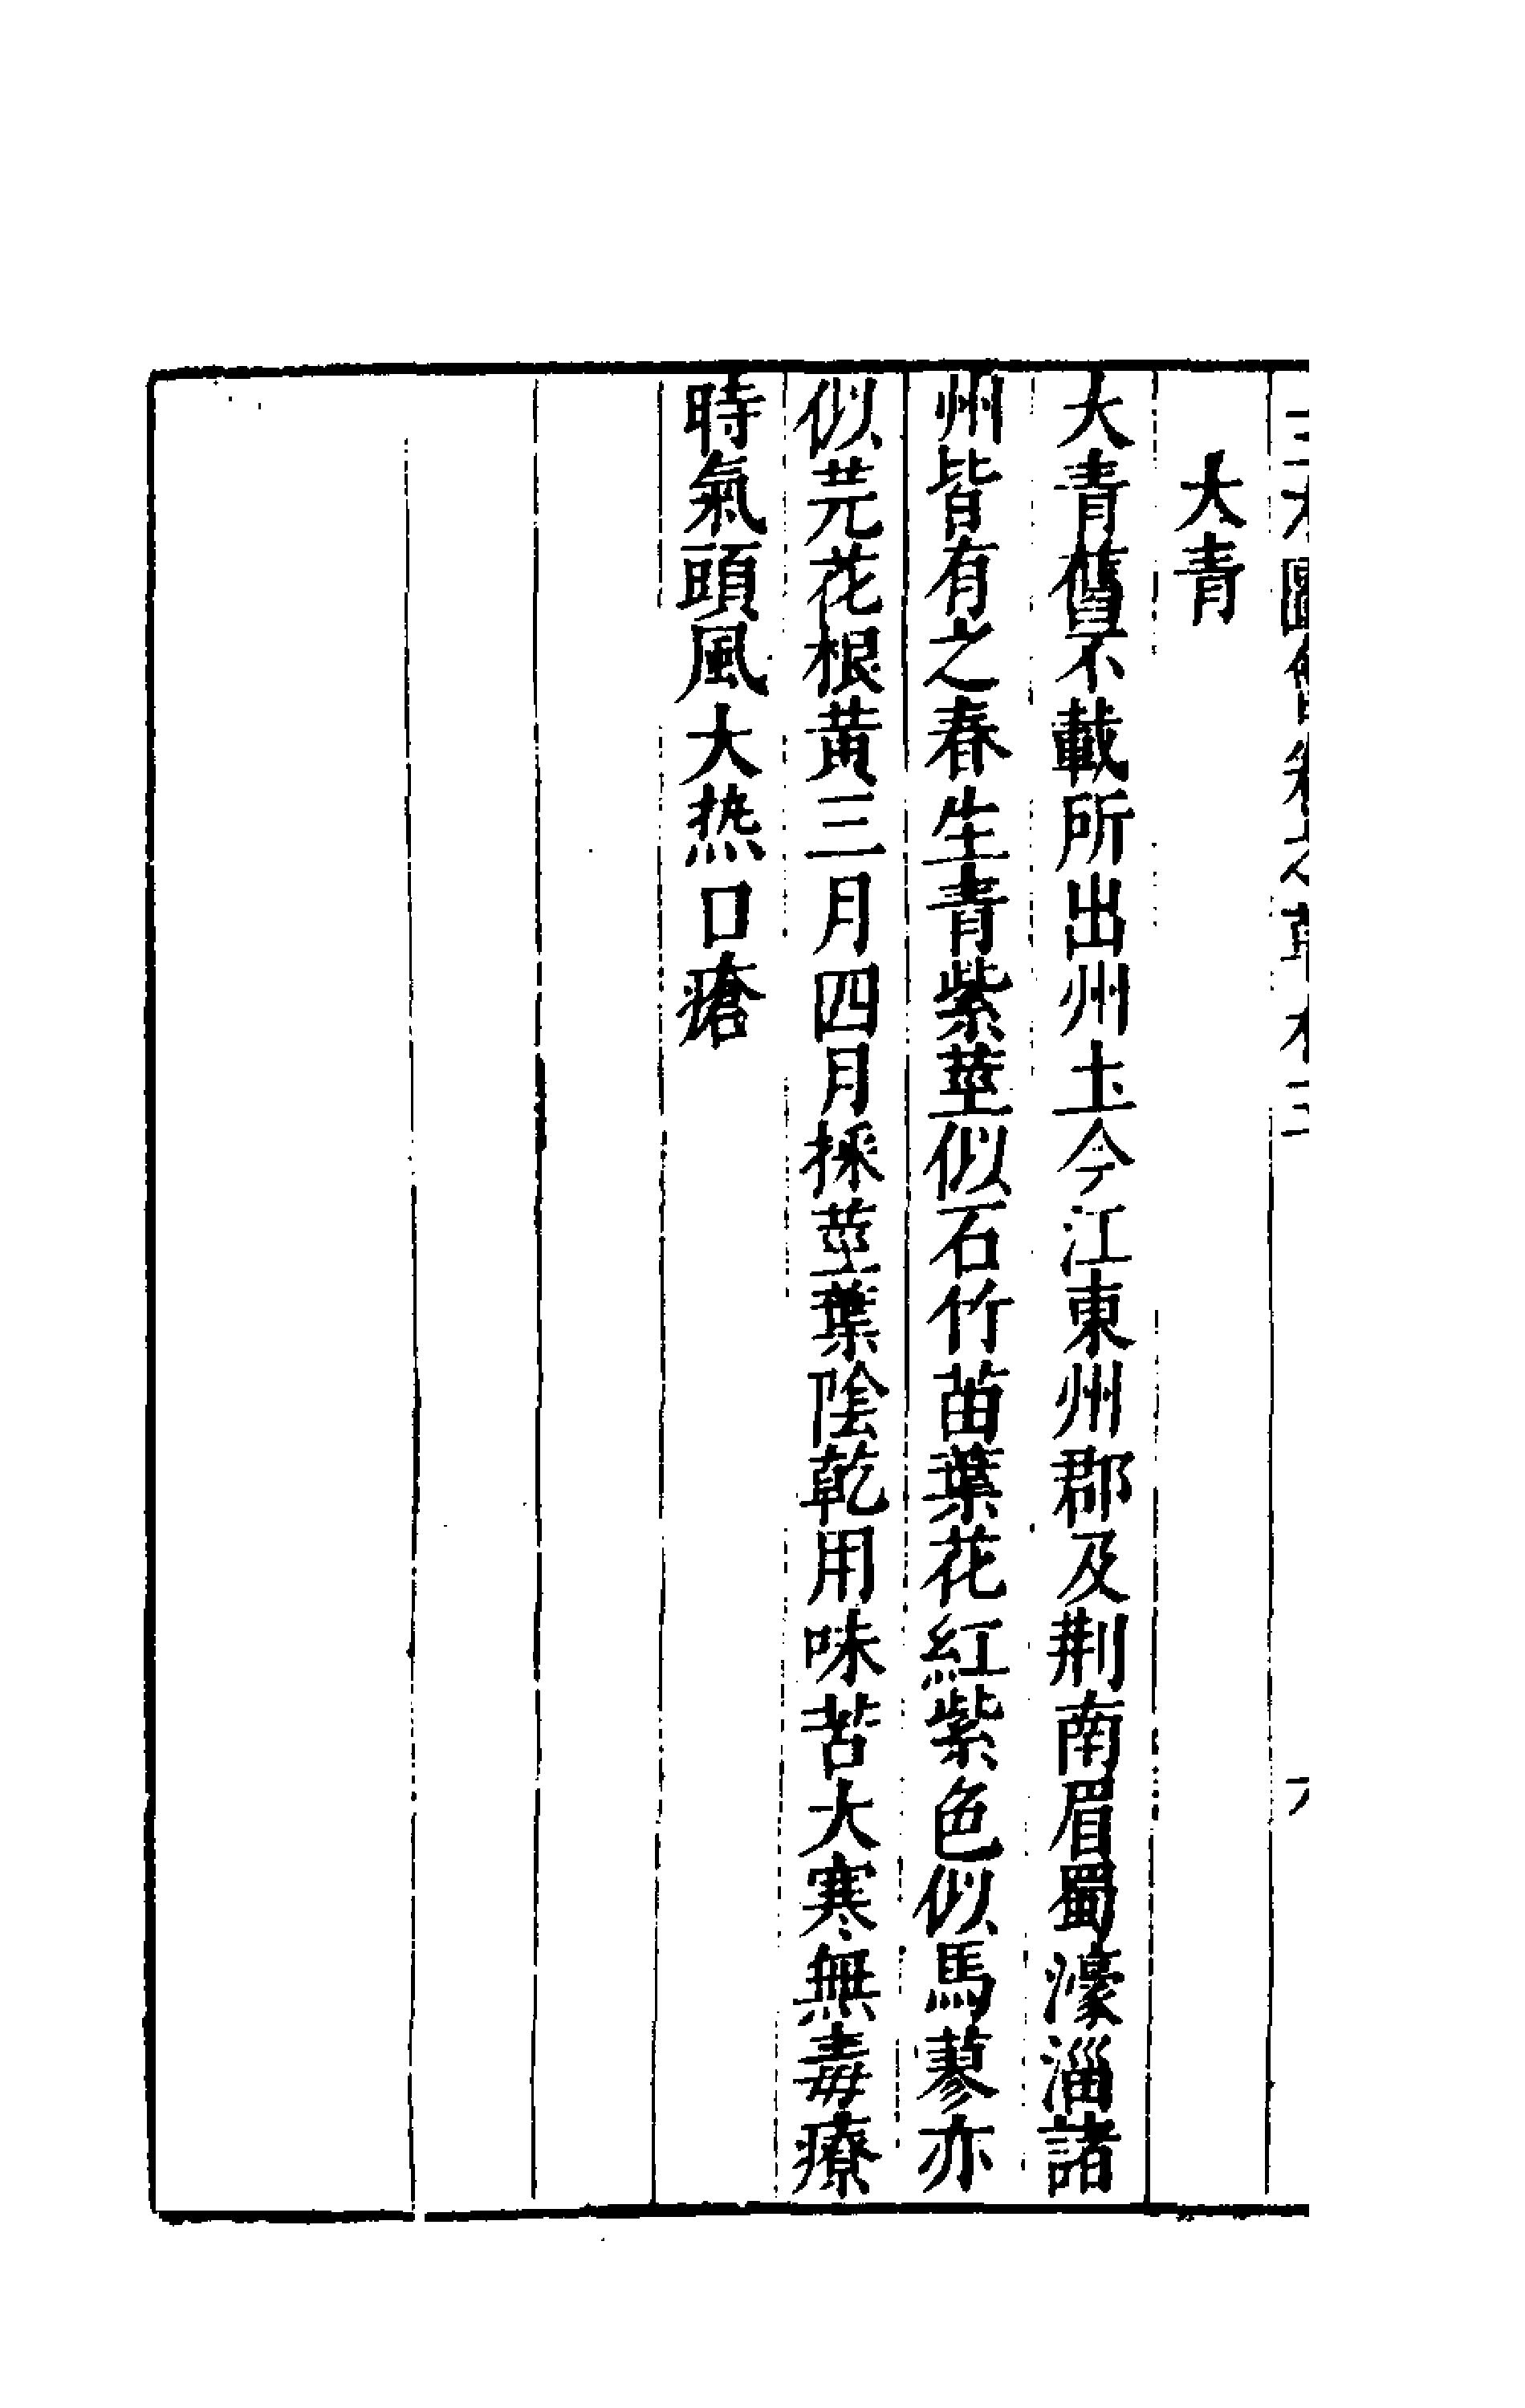 大青
大青舊不載所出州土今江東州郡及荆南眉蜀濠淄諸
州皆有之春生青紫莖似石竹苗葉花紅紫色似馬蓼亦
似芫花根黄三月四月採莖葉陰乾用味苦大寒無毒療
時氣頭風大热口瘡